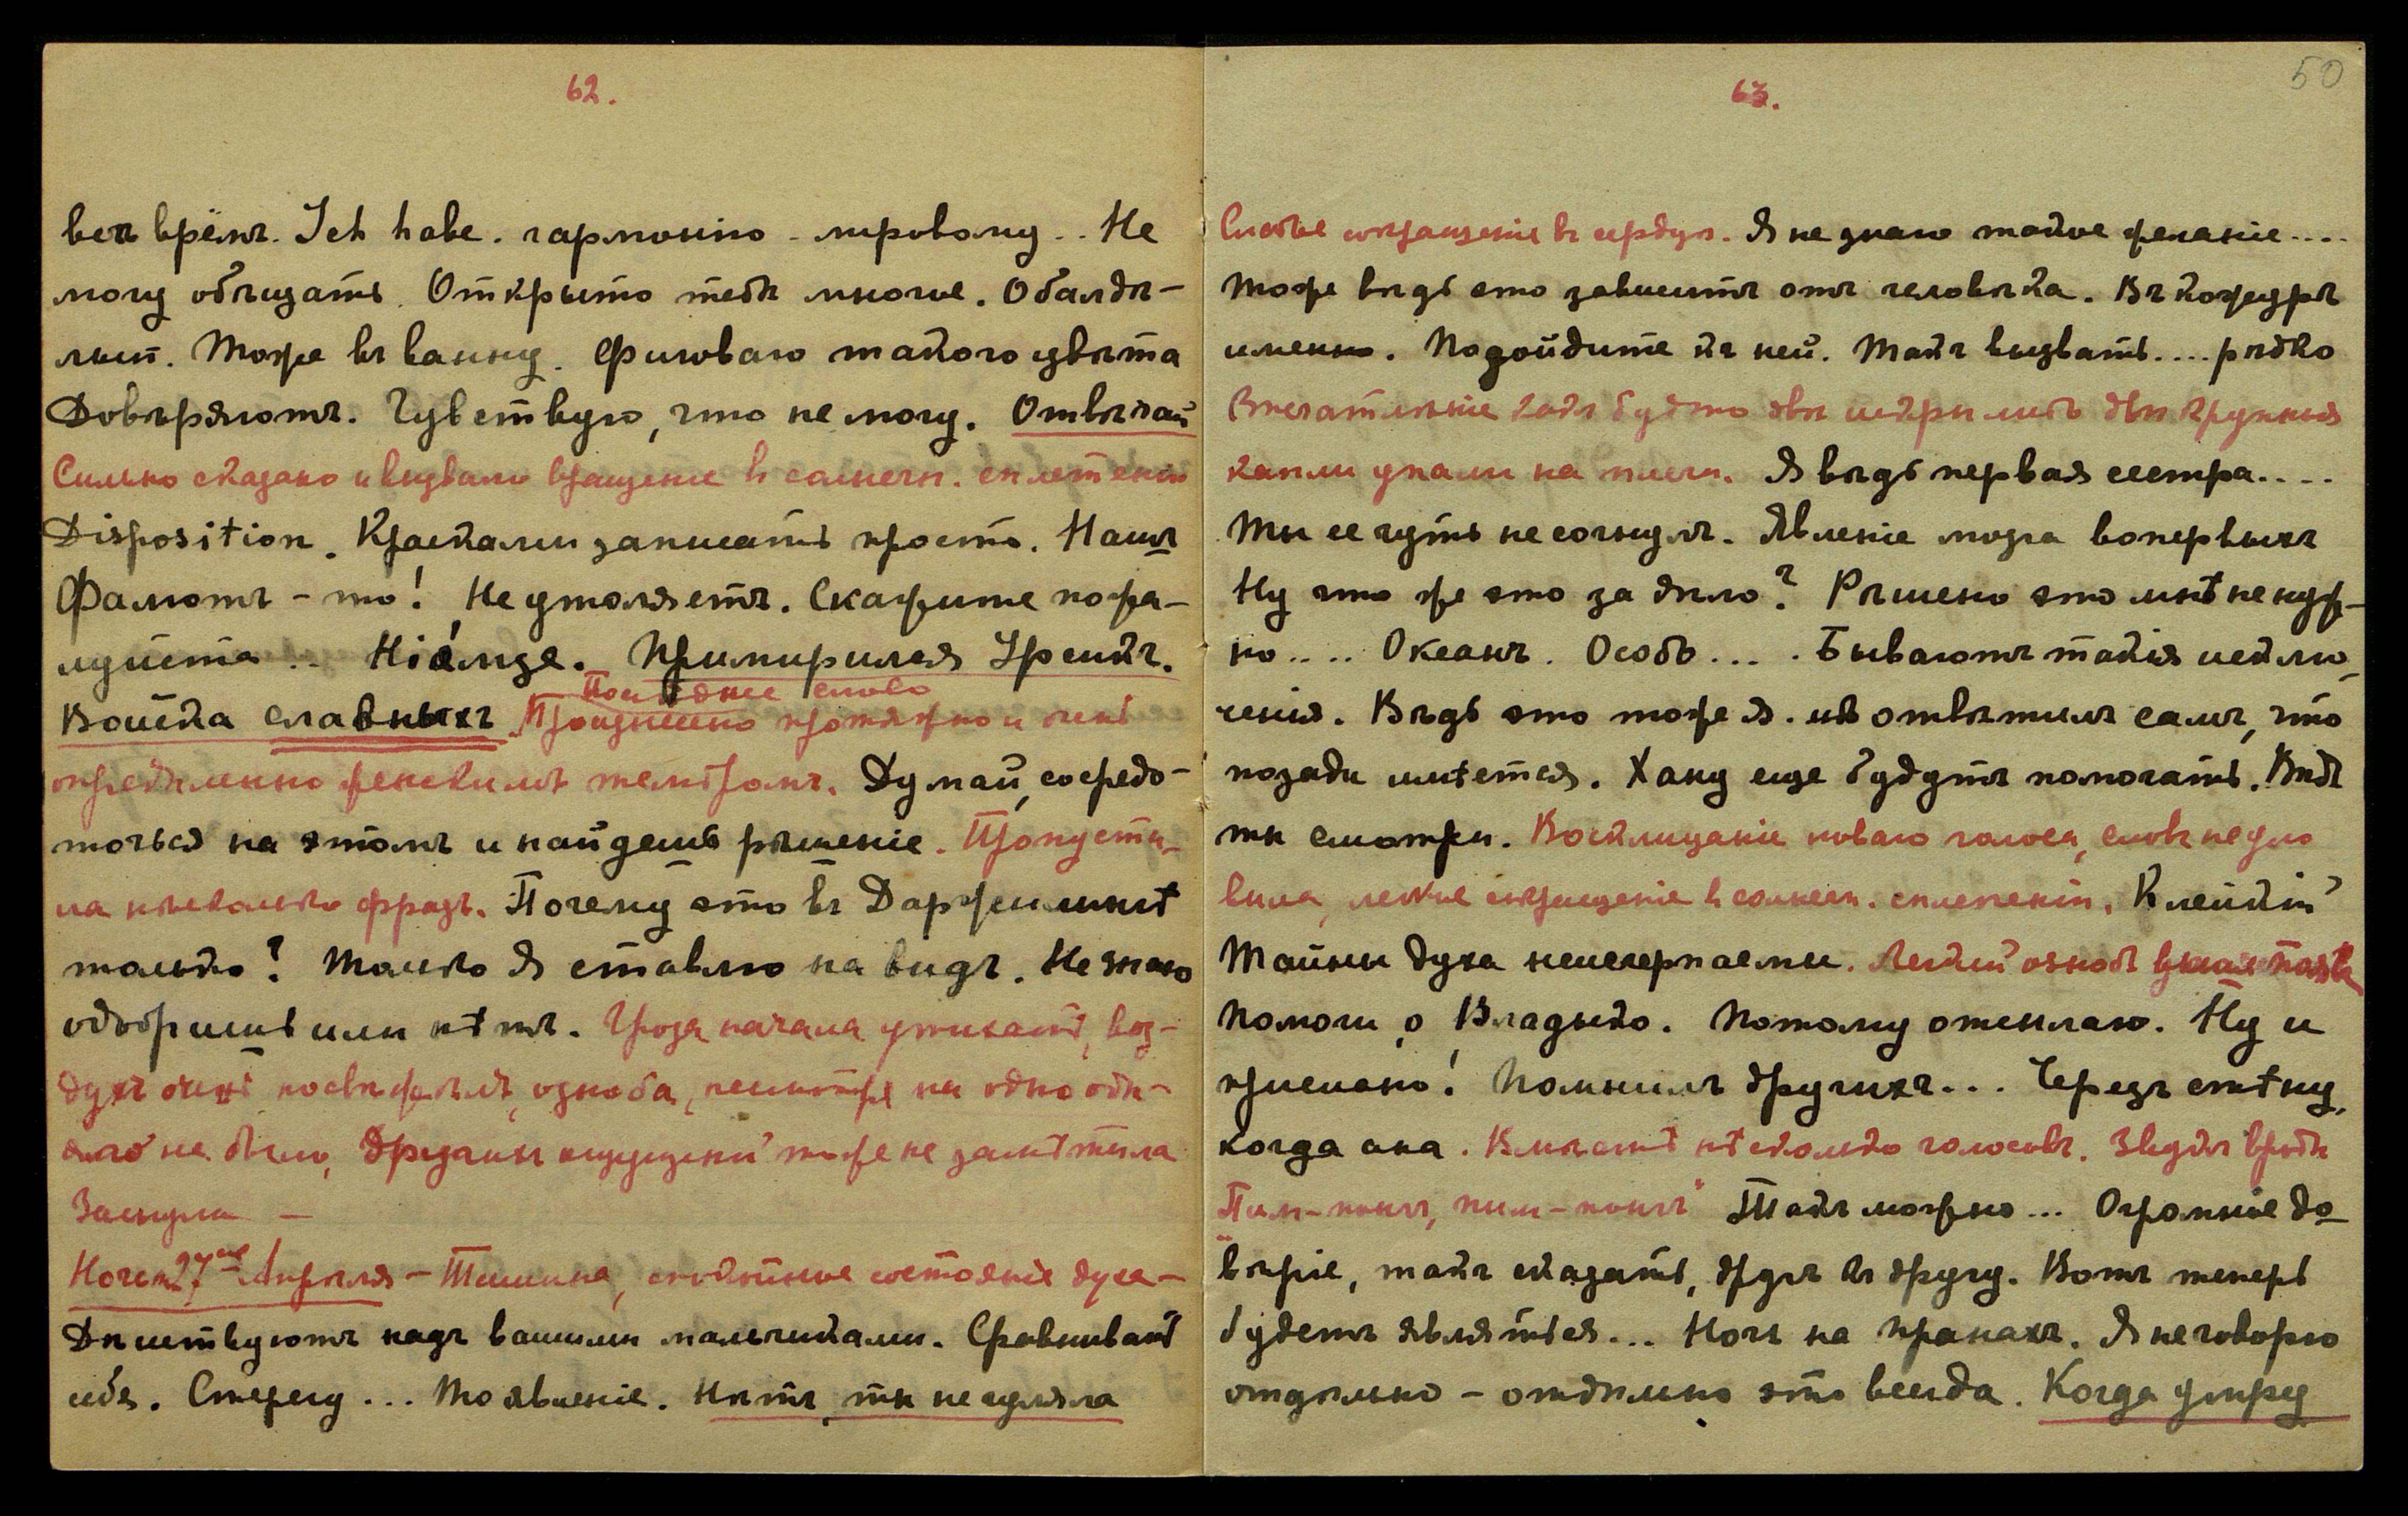 62.
всѣ врёмъ. Ich habe. гармонію - мировому.. Не
могу обѣщать. Открыто тебѣ многое. Обалдѣ-
лый. Тоже въ ванну. такого цвѣта
Довѣряютъ. Чувствую, что не могу. Отвѣчай
Сильно сказано и вызвало вращеніе въ солнечн. сплетеніи
Disposition. Красками записать просто. Нашъ
- то! Не утоляетъ. Скажите пожа-
луйста .. Примирился
Войка славныхъ. Послѣднее слово
протяжно и очень
опредѣленно женскимъ тембромъ. Думай, сосредо-
точься на этомъ и найдешь рѣшеніе. Пропусти-
ла нѣсколько фразъ. Почему это въ
только? Только я ставлю на видъ. Не знаю
одобришь или нѣтъ. Гроза начала утихать, воз-
духъ очень посвѣжѣлъ, озноба, несмотря на одно одѣ-
яло не было, другихъ ощущеній тоже не замѣтила
Заснула —
Ночь 27го Апрѣля - Тишина, спокойное состояніе духа -
Дѣйствуютъ надъ вашими мальчиками. Сравнивать
себя. Стерегу ... То явленіе. Нѣтъ, ты не гуляла
63.
50
Слабое сокращеніе въ сердцѣ. Я не знаю такое желаніе....
Тоже вѣдь это зависитъ отъ человѣка. Въ кожурѣ
именно. Подойдите къ ней. Такъ вызвать.... рѣдко
Впечатлѣніе какъ будто двѣ искры либо двѣ крупныя
капли упали на плечи. Я вѣдь первая сестра....
Ты ее чуть не согнулъ. Явленіе мозга вопервыхъ
Ну что же это за дѣло? Рѣшено это мнѣ не нуж-
но.... Океанъ. Особь.... Бываютъ такія исклю-
ченія. Вѣдь это тоже я. отвѣтилъ самъ, что
позади имѣется. Хану еще будутъ помогать. Видѣ
ты смотри. Восклицаніе новаго голоса, словъ не уло
вила, легкое сокращеніе въ солнечн. сплетеніи.
Тайны духа неисчерпаемы. Легкій ознобъ
Помоги, о Владыко. Потому отсылаю. Ну и
прислано! Помнилъ другихъ... Черезъ стѣну,
когда она. Вмѣстѣ нѣсколько голосовъ. Звуки вродѣ
„Пим-понъ, пим-понъ" Такъ можно... Огромное до-
вѣріе, такъ сказать, другъ къ другу. Вотъ теперь
будетъ являться... Ночь на пранахъ. Я не говорю
отдѣльно - отдѣльно это всегда. Когда умру